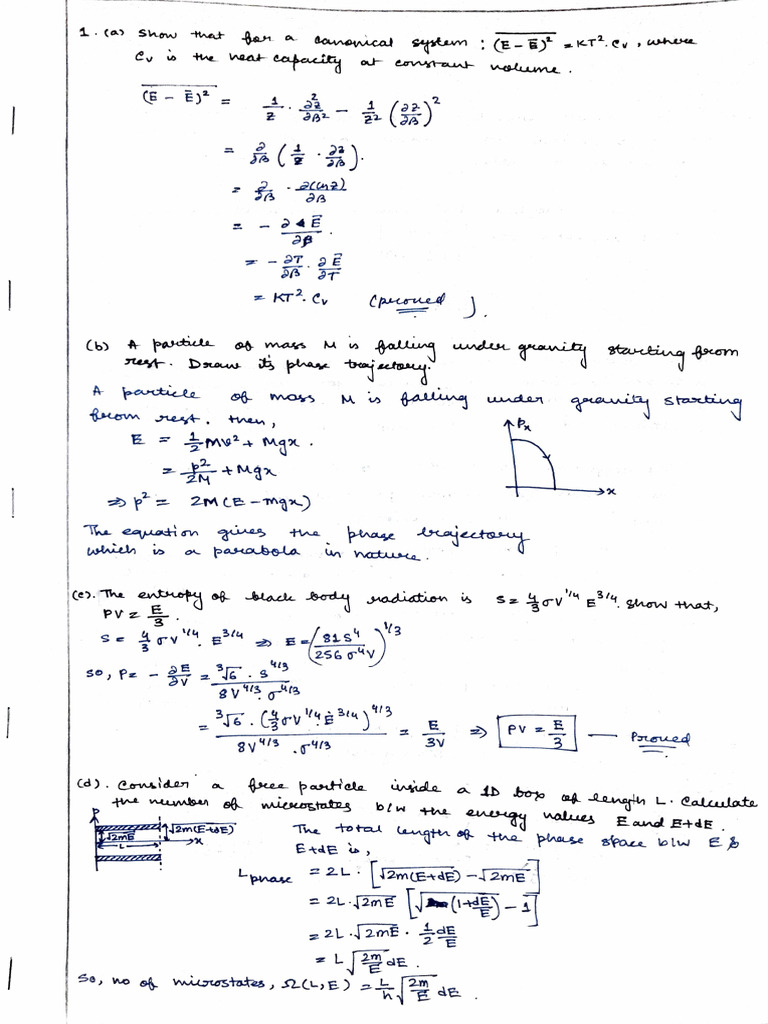 1. (a) Show that for a canonical system : \overline{(E - Ē)²} = KT². Cv, where
Cv is the heat capacity at constant volume.
\overline{(E - Ē)²} = 1/Z · ∂²Z/∂β² - 1/Z² (∂Z/∂β)²
= ∂/∂β (1/Z · ∂Z/∂β).
= ∂/∂β · ∂(lnZ)/∂β
= - ∂Ē/∂β .
= - ∂T/∂β · ∂Ē/∂T
= KT². Cv (proved).
(b) A particle of mass M is falling under gravity starting from
rest. Draw its phase trajectory.
A particle of mass M is falling under gravity starting
from rest. then,
E = 1/2 Mv² + Mgx .
= p²/2M + Mgx
⇒ p² = 2M(E - mgx)
Px
x
The equation gives the phase trajectory
which is a parabola in nature.
(c). The entropy of black body radiation is S = 4/3 σV^{1/4} E^{3/4}. show that,
PV = E/3 .
S = 4/3 σV^{1/4}. E^{3/4} ⇒ E = (81S⁴/256σ⁴V)^{1/3}
so, P = - ∂E/∂V = ³√6 . S^{4/3} / 8V^{4/3} . σ^{4/3}
= ³√6 . (4/3 σV^{1/4} . E^{3/4})^{4/3} / 8V^{4/3} . σ^{4/3} = E/3V ⇒ PV = E/3 — Proved
(d). Consider a free particle inside a 1D box of length L. Calculate
the number of microstates b/w the energy values E and E+dE.
P
√2mE
√2m(E+dE)
L
x
The total length of the phase space b/w E &
E+dE is,
L_phase = 2L . [√2m(E+dE) - √2mE]
= 2L . √2mE [√(1+dE/E) - 1]
= 2L . √2mE . 1/2 dE/E
= L √(2m/E) dE .
So, no of microstates, Ω(L,E) = L/h √(2m/E) dE .